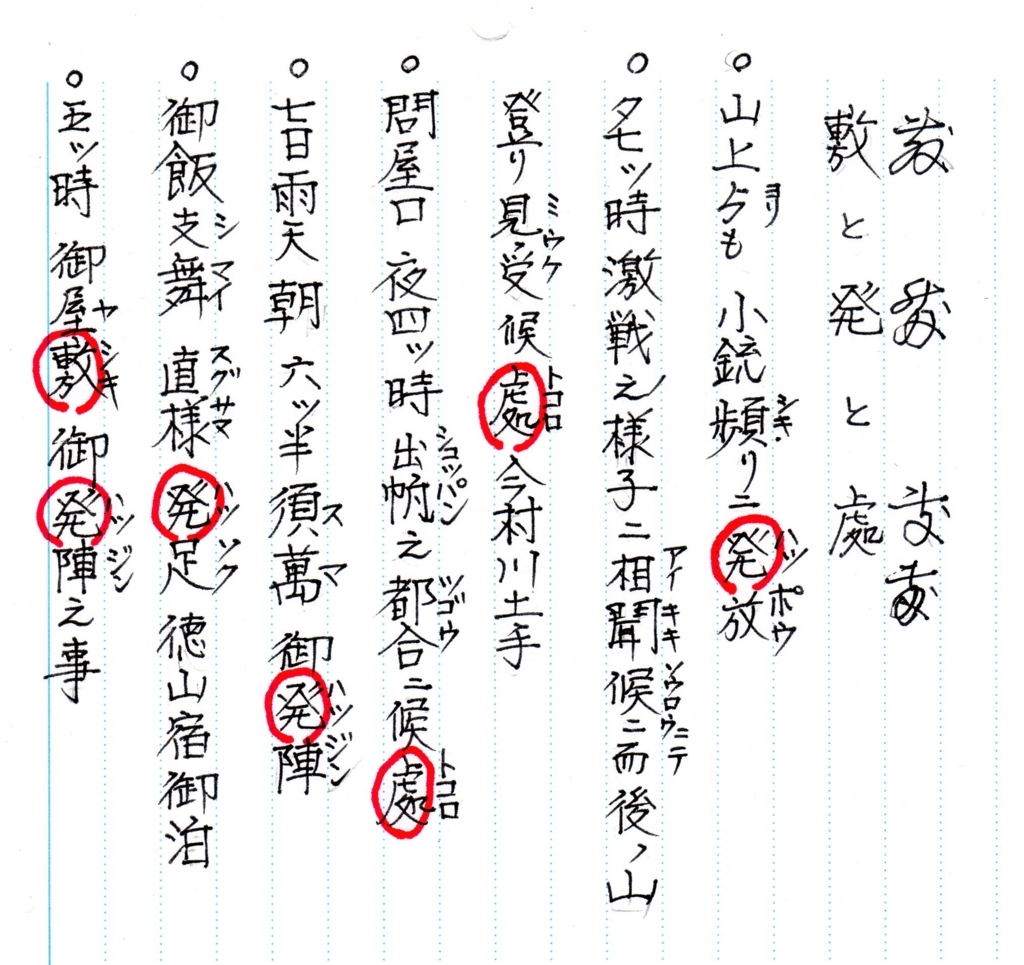 敷と発と處
○山上ゟも 小銃頻り二発放
ヨリ シキ ハツポウ
○夕七ツ時激戦之様子ニ相聞候ニ而後ノ山
ノ アイキキソウロウニテ
登り見受候處今村川土手
ミウケ トコロ
○問屋口 夜四ツ時 出帆之都合ニ候處
シユツパン ツゴウ トコロ
○七日雨天 朝 六ツ半 須萬 御発陣
スマ ハツジン
○御飯支舞 直様 発足 徳山宿御泊
シマイ スグサマ ハツソク
○五ツ時 御屋敷御発陣之事
ヤシキ ハツジン